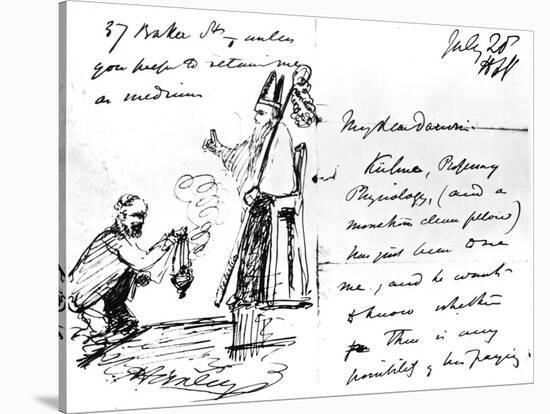 37 Baker St, unless
you prefer to retain me
as medium
July 20
My dear Darwin
Kühne, Prof. of
Physiology, (and a
clever fellow)
has just been to see
me, and he wants
to know whether
there is any
possibility of his paying